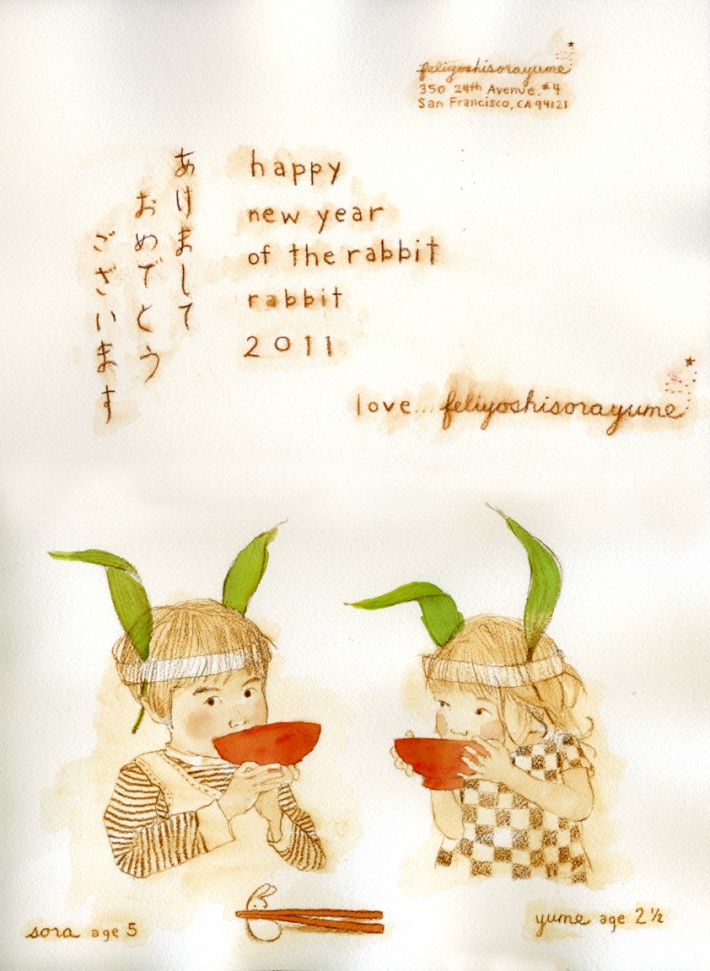 feliyoshisorayume
350 24th Avenue, #4
San Francisco, CA 94121
あけまして
おめでとう
ございます
happy
new year
of the rabbit
rabbit
2011
love... feliyoshisorayume
sora age 5
yume age 2 ½